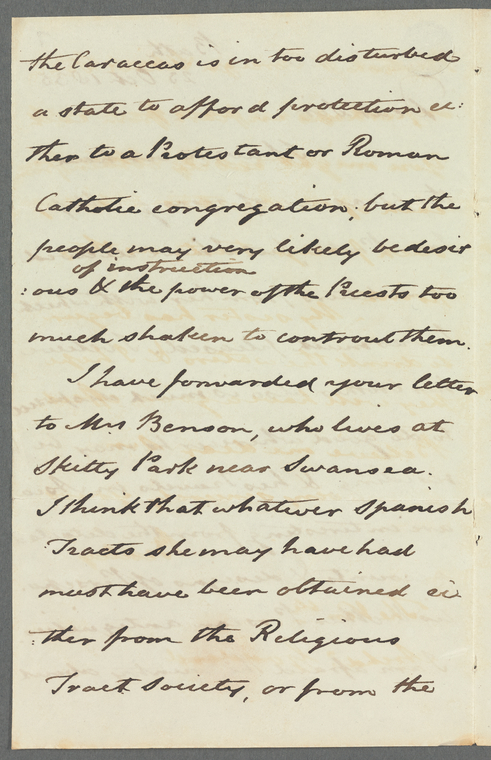 the Caraccas is in too disturbed
a state to afford protection ei:
ther to a Protestant or Roman
Catholic congregation; but the
people may very likely be desir
of instruction
:ous & the power of the Priests too
much shaken to controul them.
I have forwarded your letter
to Mrs Benson, who lives at
Skitty Park near Swansea.
I think that whatever Spanish
Tracts she may have had
must have been obtained ei
:ther from the Religious
Tract Society, or from the